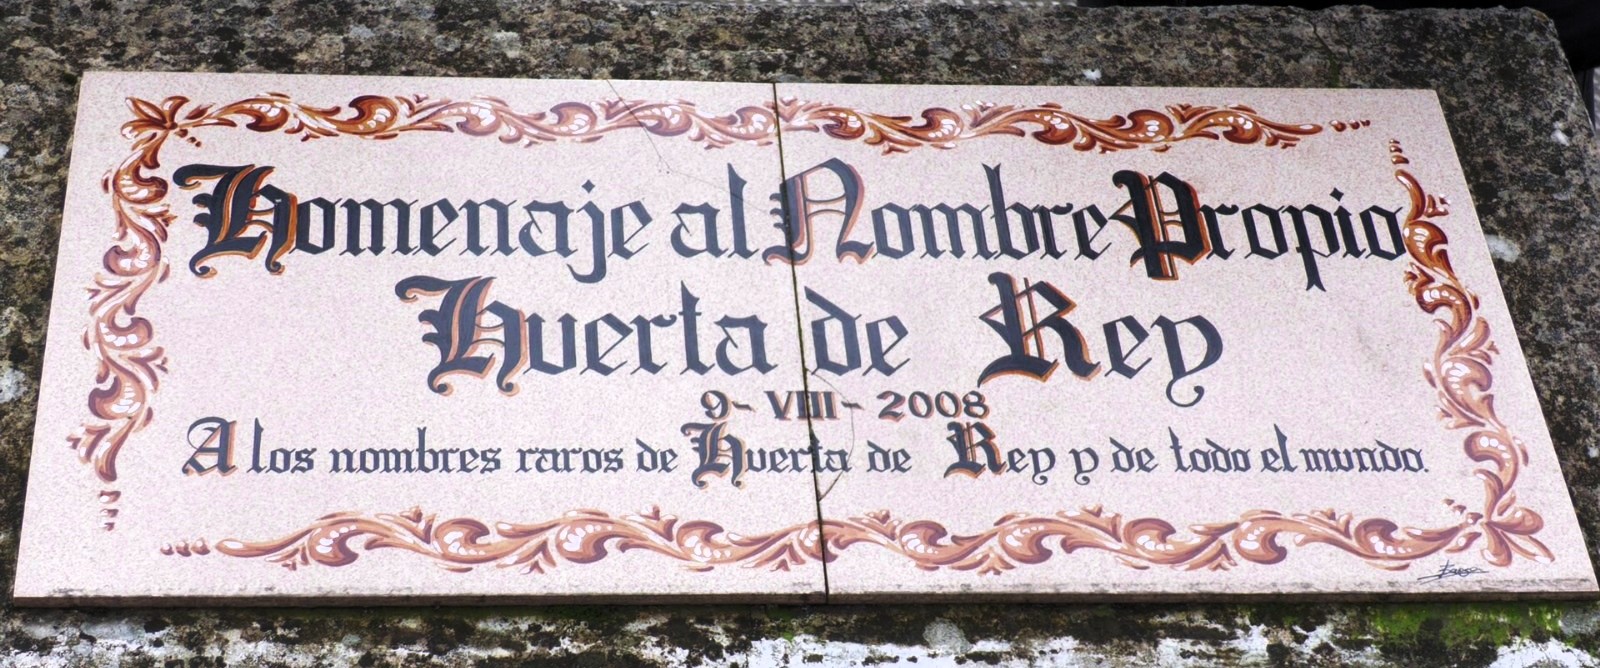 Homenaje al Nombre Propio
Huerta de Rey
9-VIII-2008
A los nombres raros de Huerta de Rey y de todo el mundo.